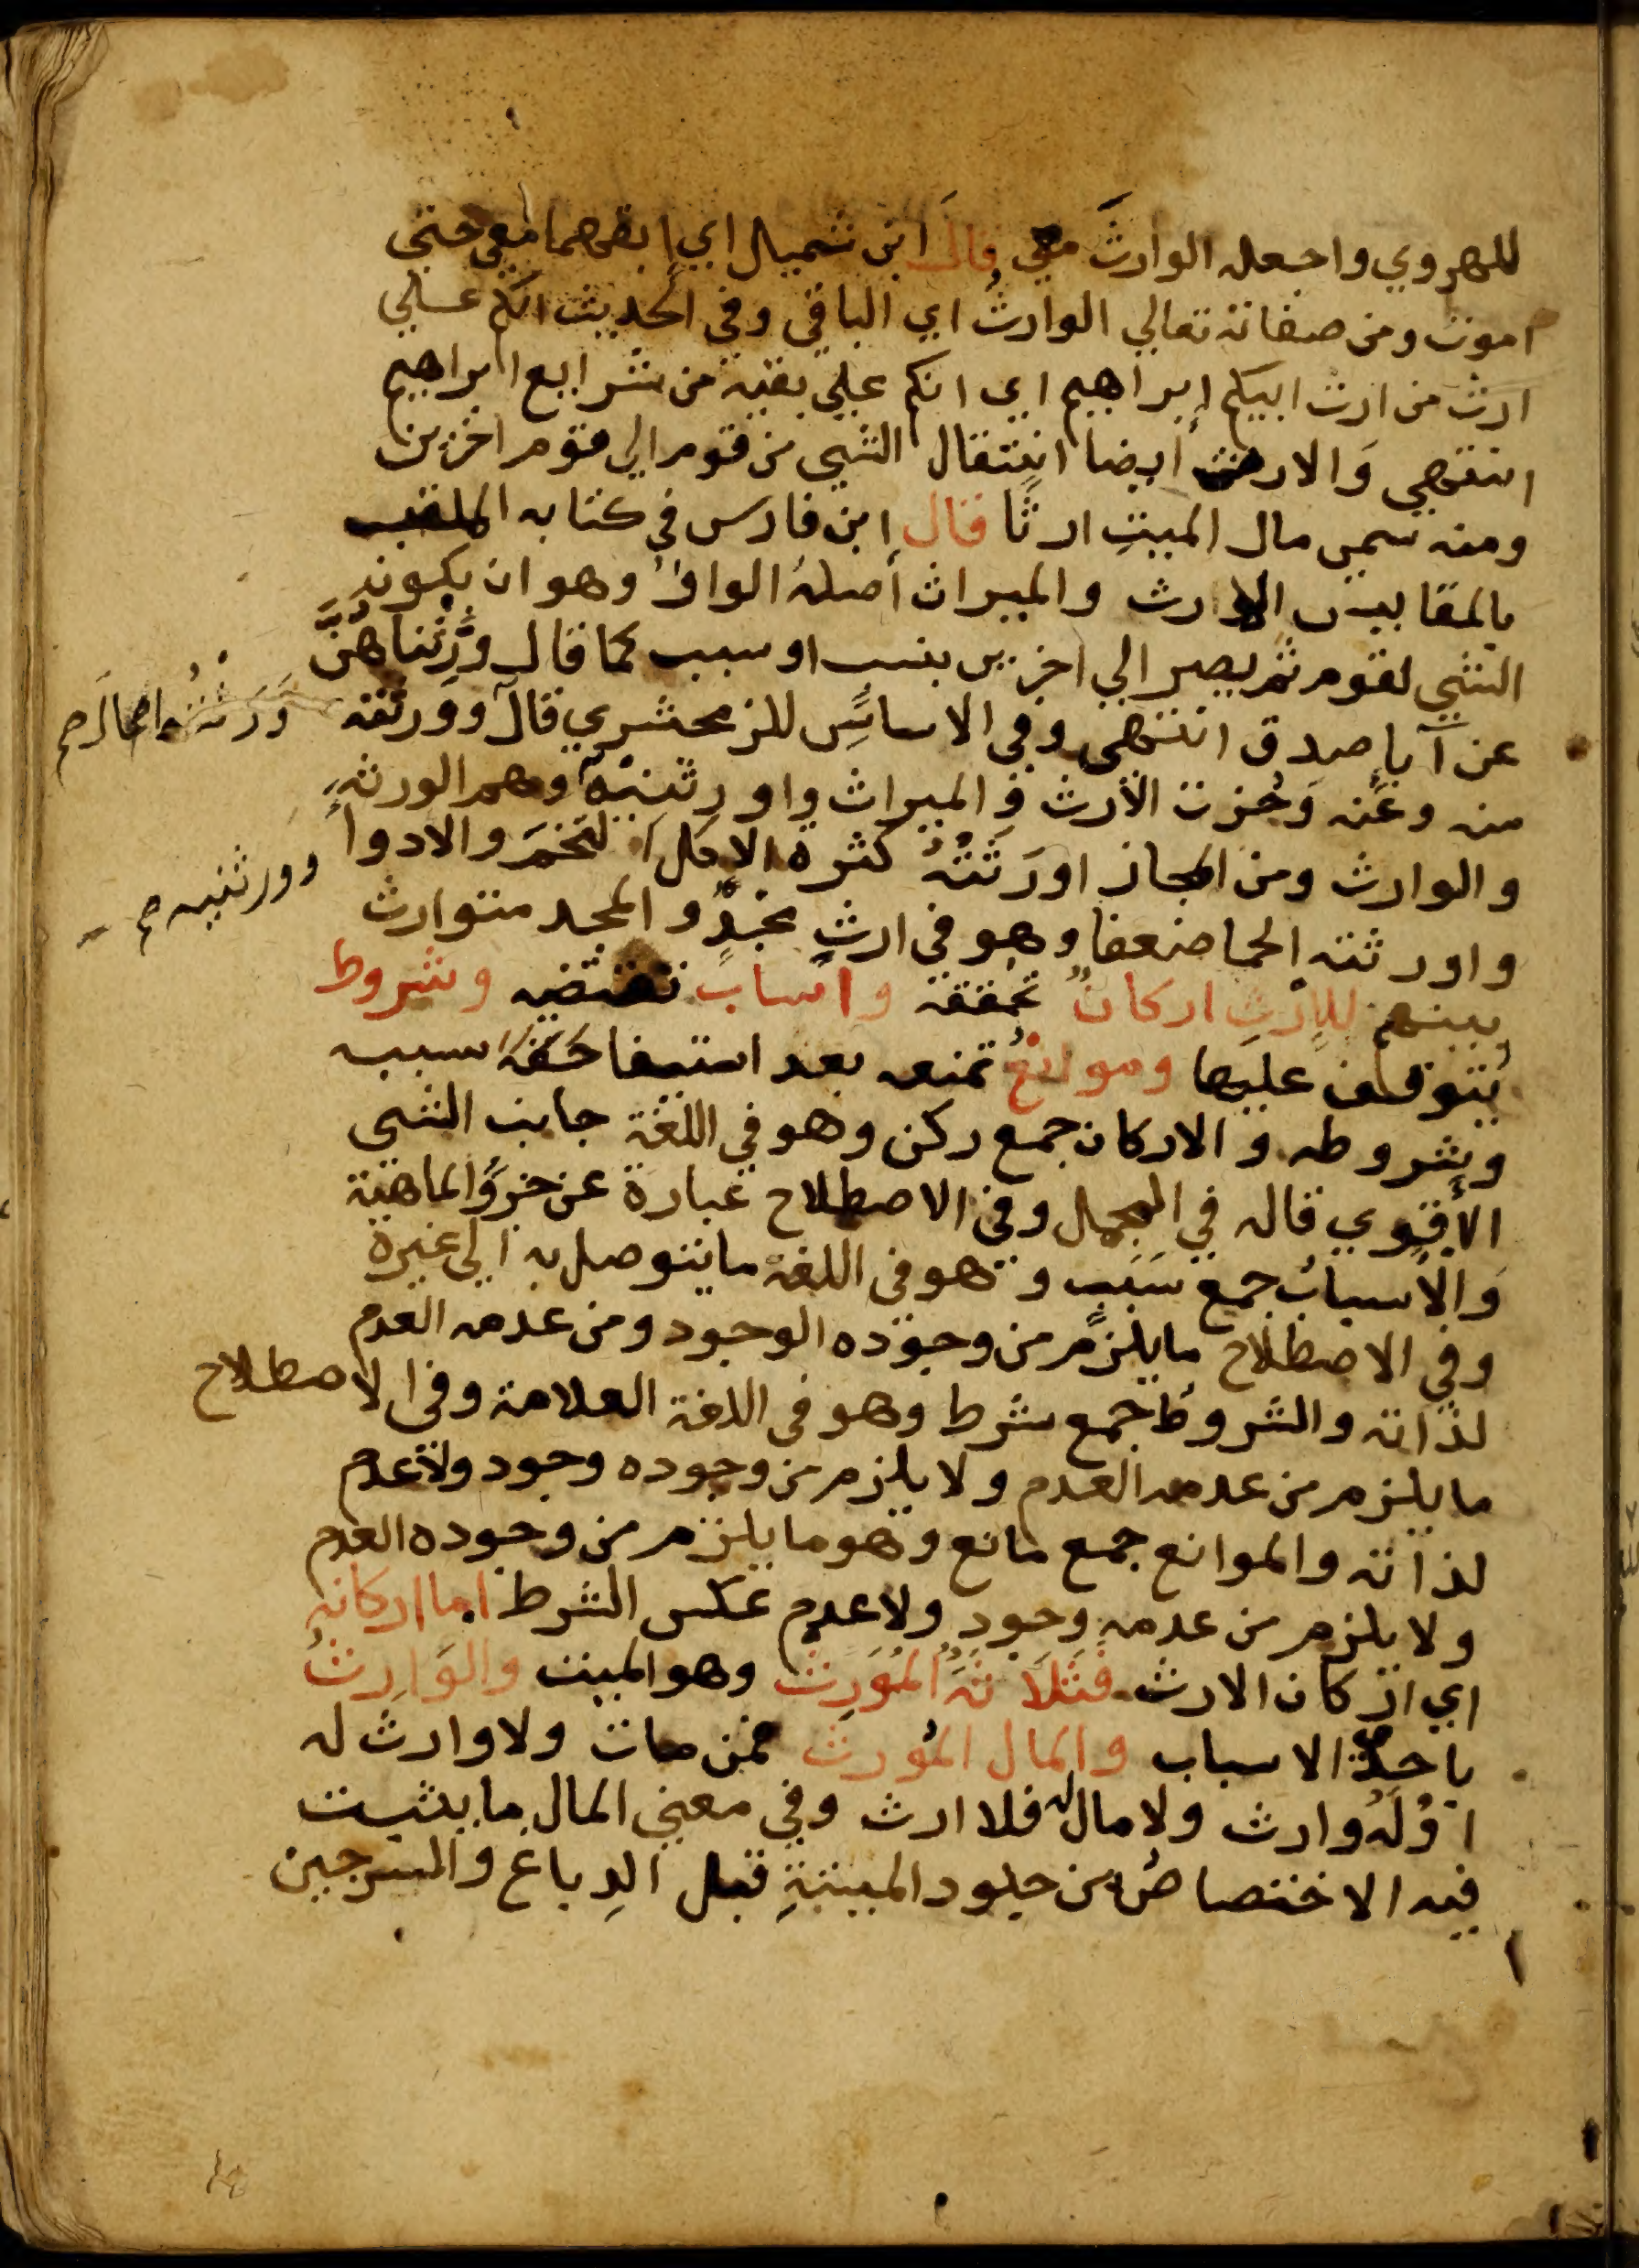 للهروي واجعله الوارثَ مني قال ابن شميل اي ابقهما معي حتى
اموت ومن صفاته تعالي الوارثُ اي الباقي وفي الحديث انكم علي
ارث من ارث ابيكم إبراهيم اي انكم علي بقية من شرايع ابراهيم
انتهي وَالارث أيضا انتقال الشي من قوم الي قوم اخرين
ومنه سمي مال الميت ارثًا قال ابن فارس في كتابه الملقب
بالمقاييس الارث والميراث أصلهُ الواوُ وهو ان يكون
الشي لقوم ثم يصير الي اخرين بنسب او سبب كما قال ورِثناهُنَّ
عن آباصدق انتهى وفي الاساسِ للزمخشري قال وورثته
منه وعَنه وَحُزت الارث و الميراث واورثنيه وهم الورثه
والوارث ومن المجاز اورَثَتْهُ كثرة الاكل التخمَ والادوأ
واورثته الحما ضعفا وهو في ارثِ مجدٍ و المجد متوارث
بينهم للإرثِ اركانٌ تحققه واسباب تقتضيه وشروط
يتوقف عليها وموانعُ تمنعه بعد استيفا حَقه سبب
وشروطه و الاركان جمع ركن وهو في اللغة جانب الشي
الاقوي قاله في المجمل وفي الاصطلاح عبارة عن جزؤُ الماهية
وَالاسبابُ جمع سَبَبٍ وهو في اللغة ما يتوصل به الي غيره
وفي الاصطلاح ما يلزم من وجوده الوجود ومن عدمه العدم
لذاته والشروطُ جمع شرط وهو في اللغة العلامة وفي الاصطلاح
ما يلزم من عدمه العدم ولا يلزم من وجوده وجود ولاعدم
لذاته والموانع جمع مانع وهو ما يلزم من وجوده العدم
ولا يلزم من عدمه وجودٍ ولا عدم عكس الشرط اما اركانه
اي اركان الارث فَثَلَاثَهُ المُوَرِث وهو الميت والوَارِثُ
باحد الاسباب والمال المُورث فمن مات ولا وارث له
اوْلَهُ وارث ولا مال له فلا ارث وفي معني المال ما يثبت
فيه الاختصاصُ من جلود الميتةِ قبل الدِباغ والسرجين
وورثنيه صح